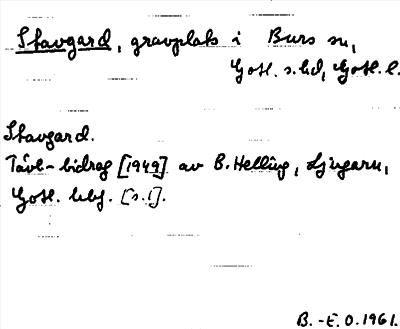 Stavgard, gravplats i Burs sn,
Gotl. s. hd, Gotl. l.
Stavgard.
Tävl-bidrag [1949] av B. Helling, Ljugarn,
Gotl. [s.l].
B.-E.O. 1961.